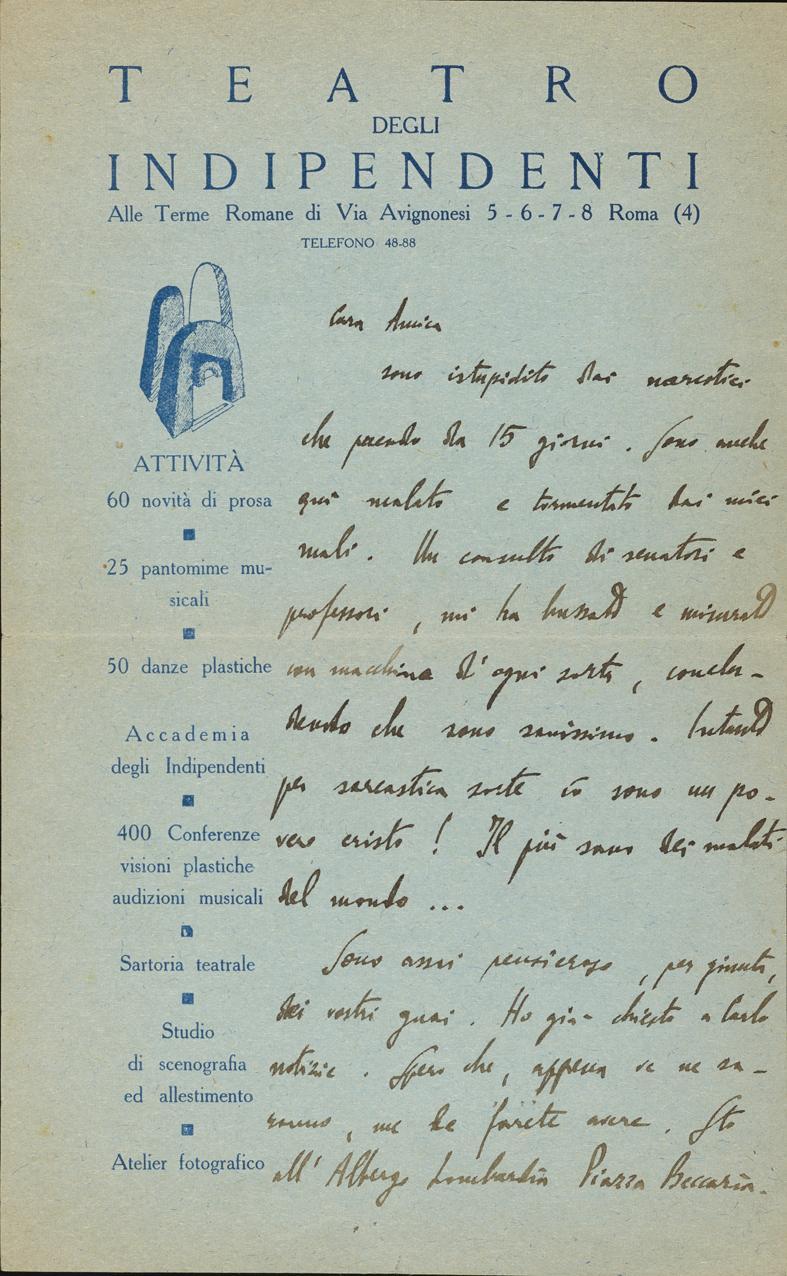 TEATRO
DEGLI
INDIPENDENTI
Alle Terme Romane di Via Avignonesi 5 - 6 - 7 - 8 Roma (4)
TELEFONO 48-88
ATTIVITÀ
60 novità di prosa
25 pantomime mu-
sicali
50 danze plastiche
Accademia
degli Indipendenti
400 Conferenze
visioni plastiche
audizioni musicali
Sartoria teatrale
Studio
di scenografia
ed allestimento
Atelier fotografico
Cara Amica
sono istupidito dai narcotici
che prendo da 15 giorni. Sono anche
qui malato e tormentato dai miei
mali. Un consulto di senatori e
professori, mi ha bussato e misurato
con macchina d'ogni sorta, conclu-
dendo che sono sanissimo. Intanto
per sarcastica sorte io sono un po-
vero cristo! Il più sano dei malati
del mondo ...
Sono assai pensieroso, per giunta,
dei vostri guai. Ho già chiesto a Carlo
notizie. Spero che, appena ve ne sa-
ranno, me le farete avere. Sto
all'Albergo Lombardia Piazza Beccaria.